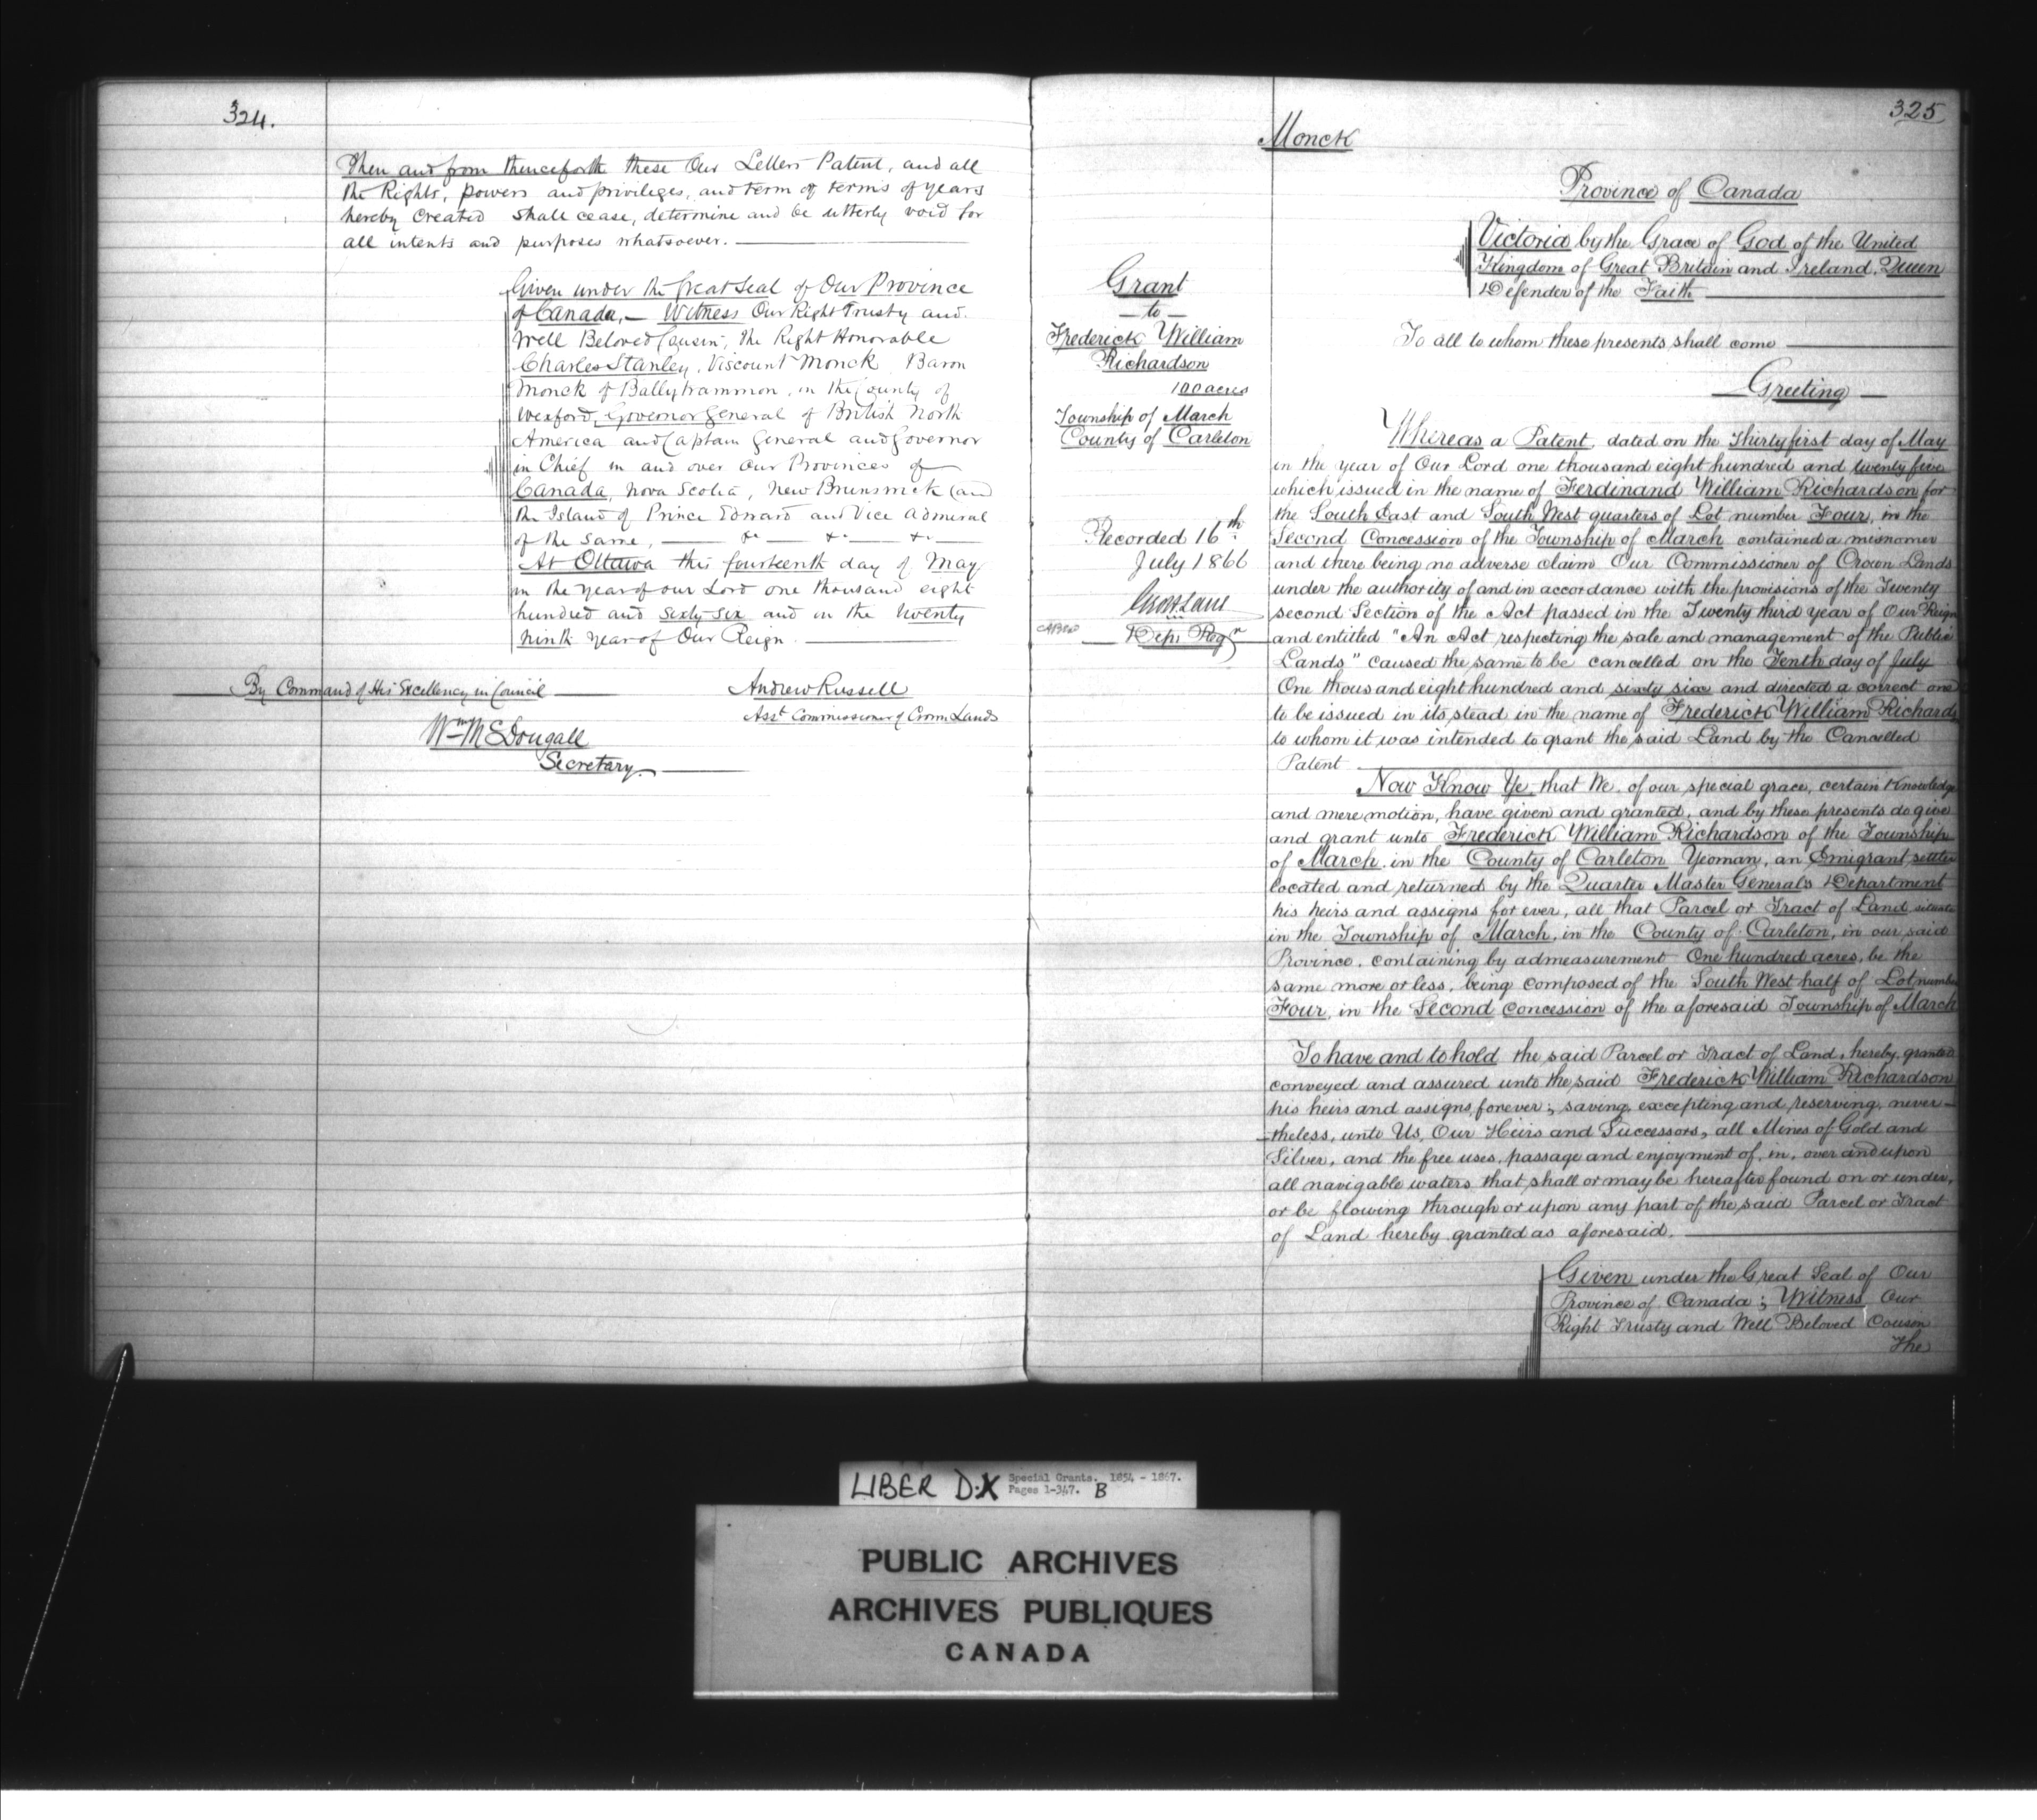 324.
Then and from thenceforth these Our Letters Patent, and all
the Rights, powers and privileges, and term or terms of years
hereby created shall cease, determine and be utterly void for
all intents and purposes whatsoever.
Given under the Great Seal of Our Province
of Canada, — Witness Our Right Trusty and
Well Beloved Cousin, the Right Honorable
Charles Stanley, Viscount Monck Baron
Monck of Ballytrammon, in the County of
Wexford, Governor General of British North
America and Captain General and Governor
in Chief in and over Our Provinces of
Canada, Nova Scotia, New Brunswick and
the Island of Prince Edward and Vice Admiral
of the Same, — &c — &c — &c —
At Ottawa this fourteenth day of May
in the year of our Lord one thousand eight
hundred and Sixty Six and in the twenty
ninth year of Our Reign.
By Command of His Excellency in Council
Andrew Russell
Asst Commissioner of Crown Lands
Wm McDougall
Secretary
325
Monck
Province of Canada
Victoria by the Grace of God of the United
Kingdom of Great Britain and Ireland, Queen
Defender of the Faith
To all to whom these presents shall come
Greeting
Grant
— to —
Frederick William
Richardson
100 acres
Township of March
County of Carleton
Recorded 16th
July 1866
Depy Regr
Whereas a Patent dated on the Thirty first day of May
in the year of Our Lord one thousand eight hundred and twenty five
which issued in the name of Ferdinand William Richardson for
the South East and South West quarters of Lot number Four, in the
Second Concession of the Township of March contained a misnomer
and there being no adverse claim Our Commissioner of Crown Lands
under the authority of and in accordance with the provisions of the Twenty
second Section of the Act passed in the Twenty third year of Our Reign
and entitled "An Act respecting the sale and management of the Public
Lands" caused the same to be cancelled on the Tenth day of July
One thousand eight hundred and sixty six and directed a correct one
to be issued in its stead in the name of Frederick William Richards
to whom it was intended to grant the said Land by the Cancelled
Patent
Now Know Ye, that We, of our special grace, certain Knowledge
and mere motion, have given and granted, and by these presents do give
and grant unto Frederick William Richardson of the Township
of March, in the County of Carleton Yeoman, an Emigrant settler
located and returned by the Quarter Master General's Department
his heirs and assigns for ever, all that Parcel or Tract of Land situate
in the Township of March, in the County of Carleton, in our said
Province, containing by admeasurement One hundred acres, be the
same more or less, being composed of the South West half of Lot number
Four, in the Second Concession of the aforesaid Township of March
To have and to hold the said Parcel or Tract of Land, hereby granted
conveyed and assured unto the said Frederick William Richardson
his heirs and assigns forever; saving, excepting and reserving, never-
-theless, unto Us, Our Heirs and Successors, all Mines of Gold and
Silver, and the free uses, passage and enjoyment of, in, over and upon
all navigable waters that shall or may be hereafter found on or under,
or be flowing through or upon any part of the said Parcel or Tract
of Land hereby granted as aforesaid.
Given under the Great Seal of Our
Province of Canada; Witness, Our
Right Trusty and Well Beloved Cousin
The
LIBER D.X Special Grants. 1854 - 1867.
Pages 1-347. B
PUBLIC ARCHIVES
ARCHIVES PUBLIQUES
CANADA